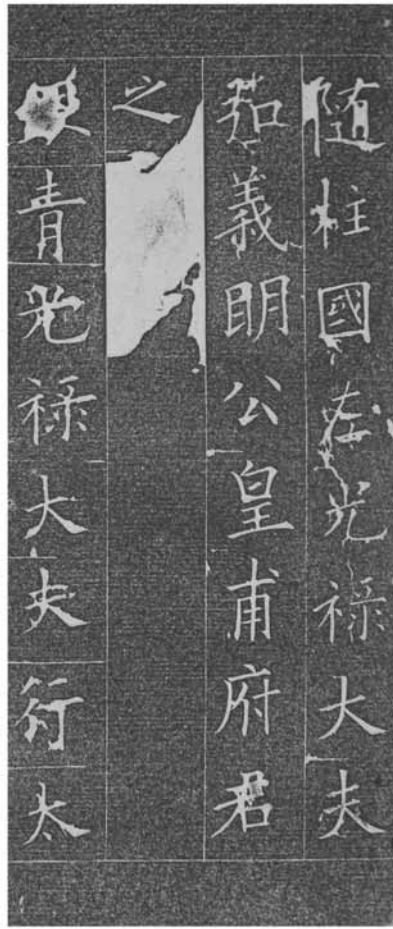 随柱國左光禄大夫
義明公皇甫府君
之
青光禄大夫行太